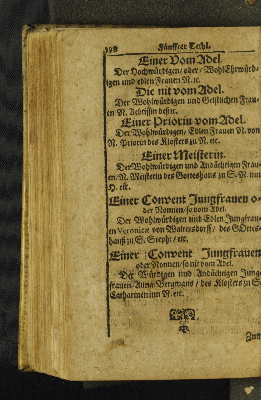 198 Fünffter Theil.
Einer Vom Adel.
Der Hochwürdigen/ oder/ WohlEhrwürd-
igen und edlen Frauen N. ꝛc.
Die nit vom Adel.
Der Wohlwürdigen und Geistlichen Frau-
en N. Aebtissin des ꝛc.
Einer Priorin vom Adel.
Der Wohlwürdigen/ Edlen Frauen N. von
N. Priorin des Klosters zu N. ꝛc.
Einer Meisterin.
Der Wohlwürdigen und Andächtigen Frau-
en/ N. Meisterin des Gotteshaus zu S. N. in
Einer Convent Jungfrauen o-
der Nonnen/ so vom Adel.
Der Wohlwürdigen und Edlen Jungfrau-
en Veronicæ von Waltersdorff/ des GOttes-
hauß zu S. Steph: / ꝛc.
Einer Convent Jungfrauen
oder Nonnen/ so nit vom Adel.
Der Würdigen und Andächtigen Jung-
frauen Anna Bergmans/ des Klosters zu S.
Catharinen in N. ꝛc.